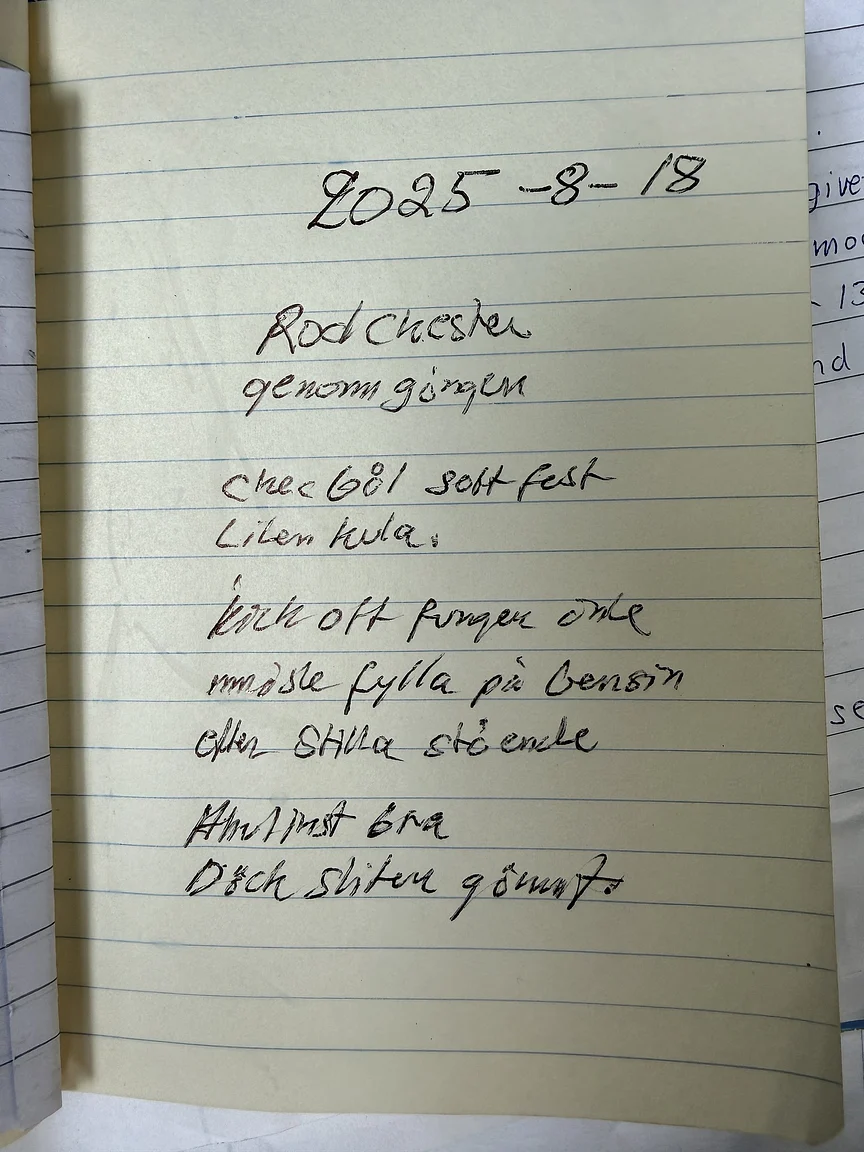 2025-8-18
Rodchester
genomgången
chec Gål satt fast
Liten kula.
kick off funger
måste fylla på bensin
efter stilla stående
bra
Däck sliten
give
13
nd
se